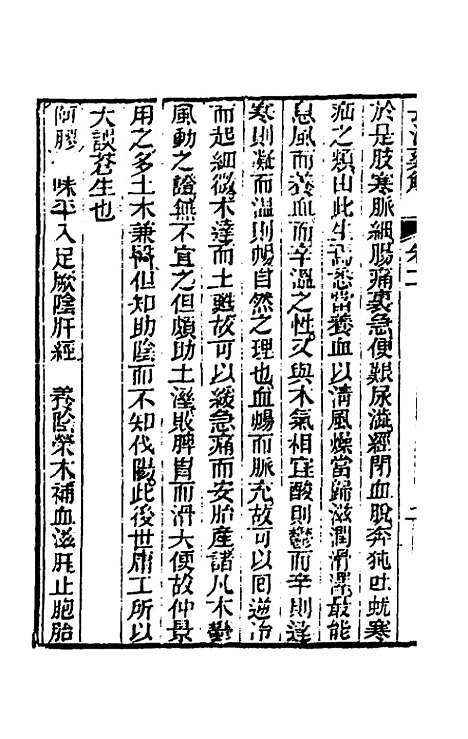 長沙藥解　卷二
於是肢寒脈細腸痛裏急便艱尿澁經閉血脫奔㹠吐蚘寒
疝之類由此生焉悉當養血以清風燥當歸滋潤滑澤最能
息風而養血而辛溫之性又與木氣相宜酸則鬱而辛則達
寒則凝而溫則暢自然之理也血暢而脈充故可以回逆冷
而起細微木達而土甦故可以緩急痛而安胎產諸凡木鬱
風動之證無不宜之但頗助土溼敗脾胃而滑大便故仲景
用之多土木兼醫但知助陰而不知伐陽此後世庸工所以
大誤蒼生也
阿膠　味平入足厥陰肝經　養陰榮木補血滋肝止胞胎